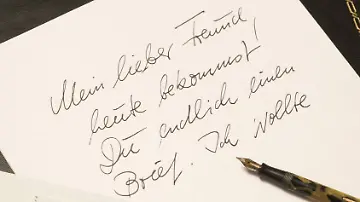 Mein lieber Freund
heute bekommst
Du endlich einen
Brief. Ich wollte